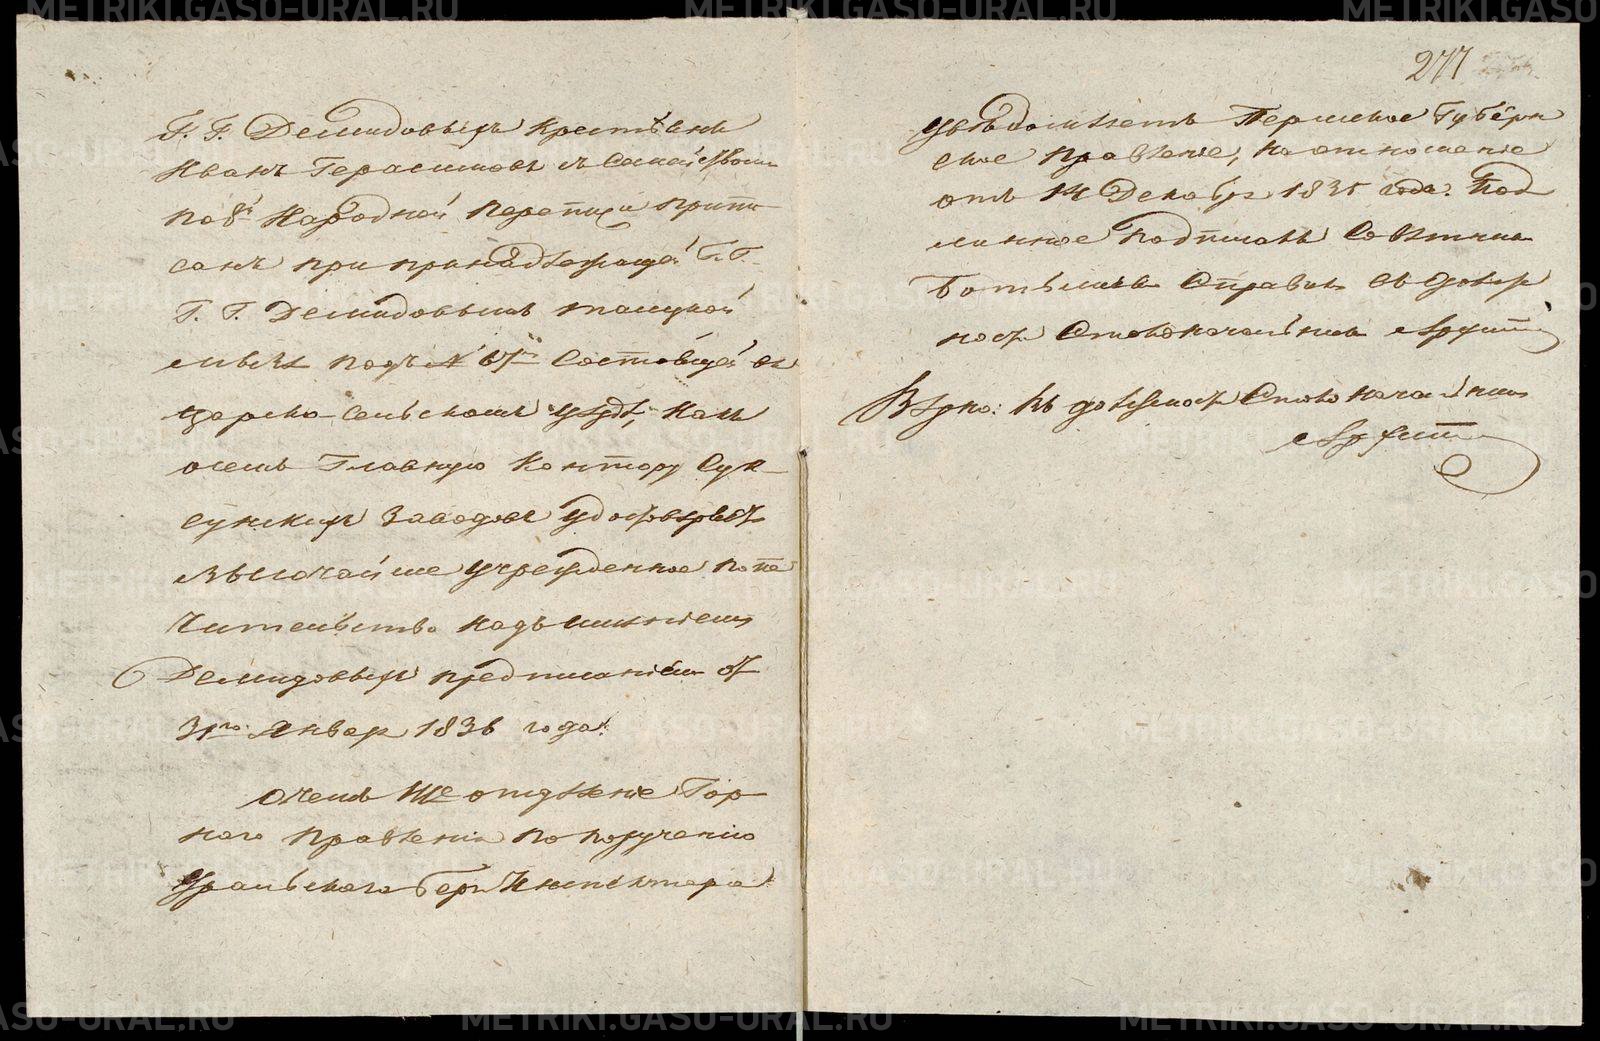 Г. Г. Демидовыхъ крестьянъ
Иванъ Герасимовъ съ Семействомъ
по 8й Народной переписи припи
санъ при принадлежащей Г. Г.
Г. Г. Демидовымъ
подъ № 67мъ Состоящей въ
Царско-сельскомъ уѣздѣ, какъ
очемъ Главную Контору Сук
сунскихъ Заводовъ удостовѣряетъ
Высочайше учрежденное попе
чительство надъ имѣніемъ
Демидовыхъ предписаніемъ отъ
31го Январ 1836 года.
Очемъ IIIе отдѣленіе Гор
наго Правленія по порученію
Уральскаго Берг Инспектора
277
увѣдомляетъ Пермское Губерн
ское Правленіе, на отношеніе
отъ 14 Декабря 1835 года. Под
линное подписалъ Совѣтникъ
Справилъ въ долж
ность Столоначальника
Вѣрно: Въ должность Столоначальника
METRIKI.GASO-URAL.RU